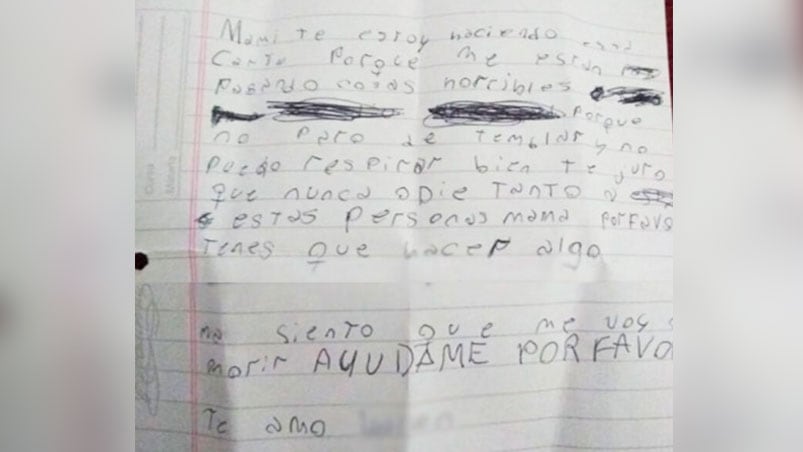 Mami te estoy haciendo esta
Carta Porque me estan
Pasando cosas horribles
Porque
no Paro de temblar y no
Puedo respirar bien te juro
que nunca odie TANTO a
estas Personas mama PorFavo
Tenes que hacer algo
siento que me voy
morir AYUDAME POR FAVO
Te amo